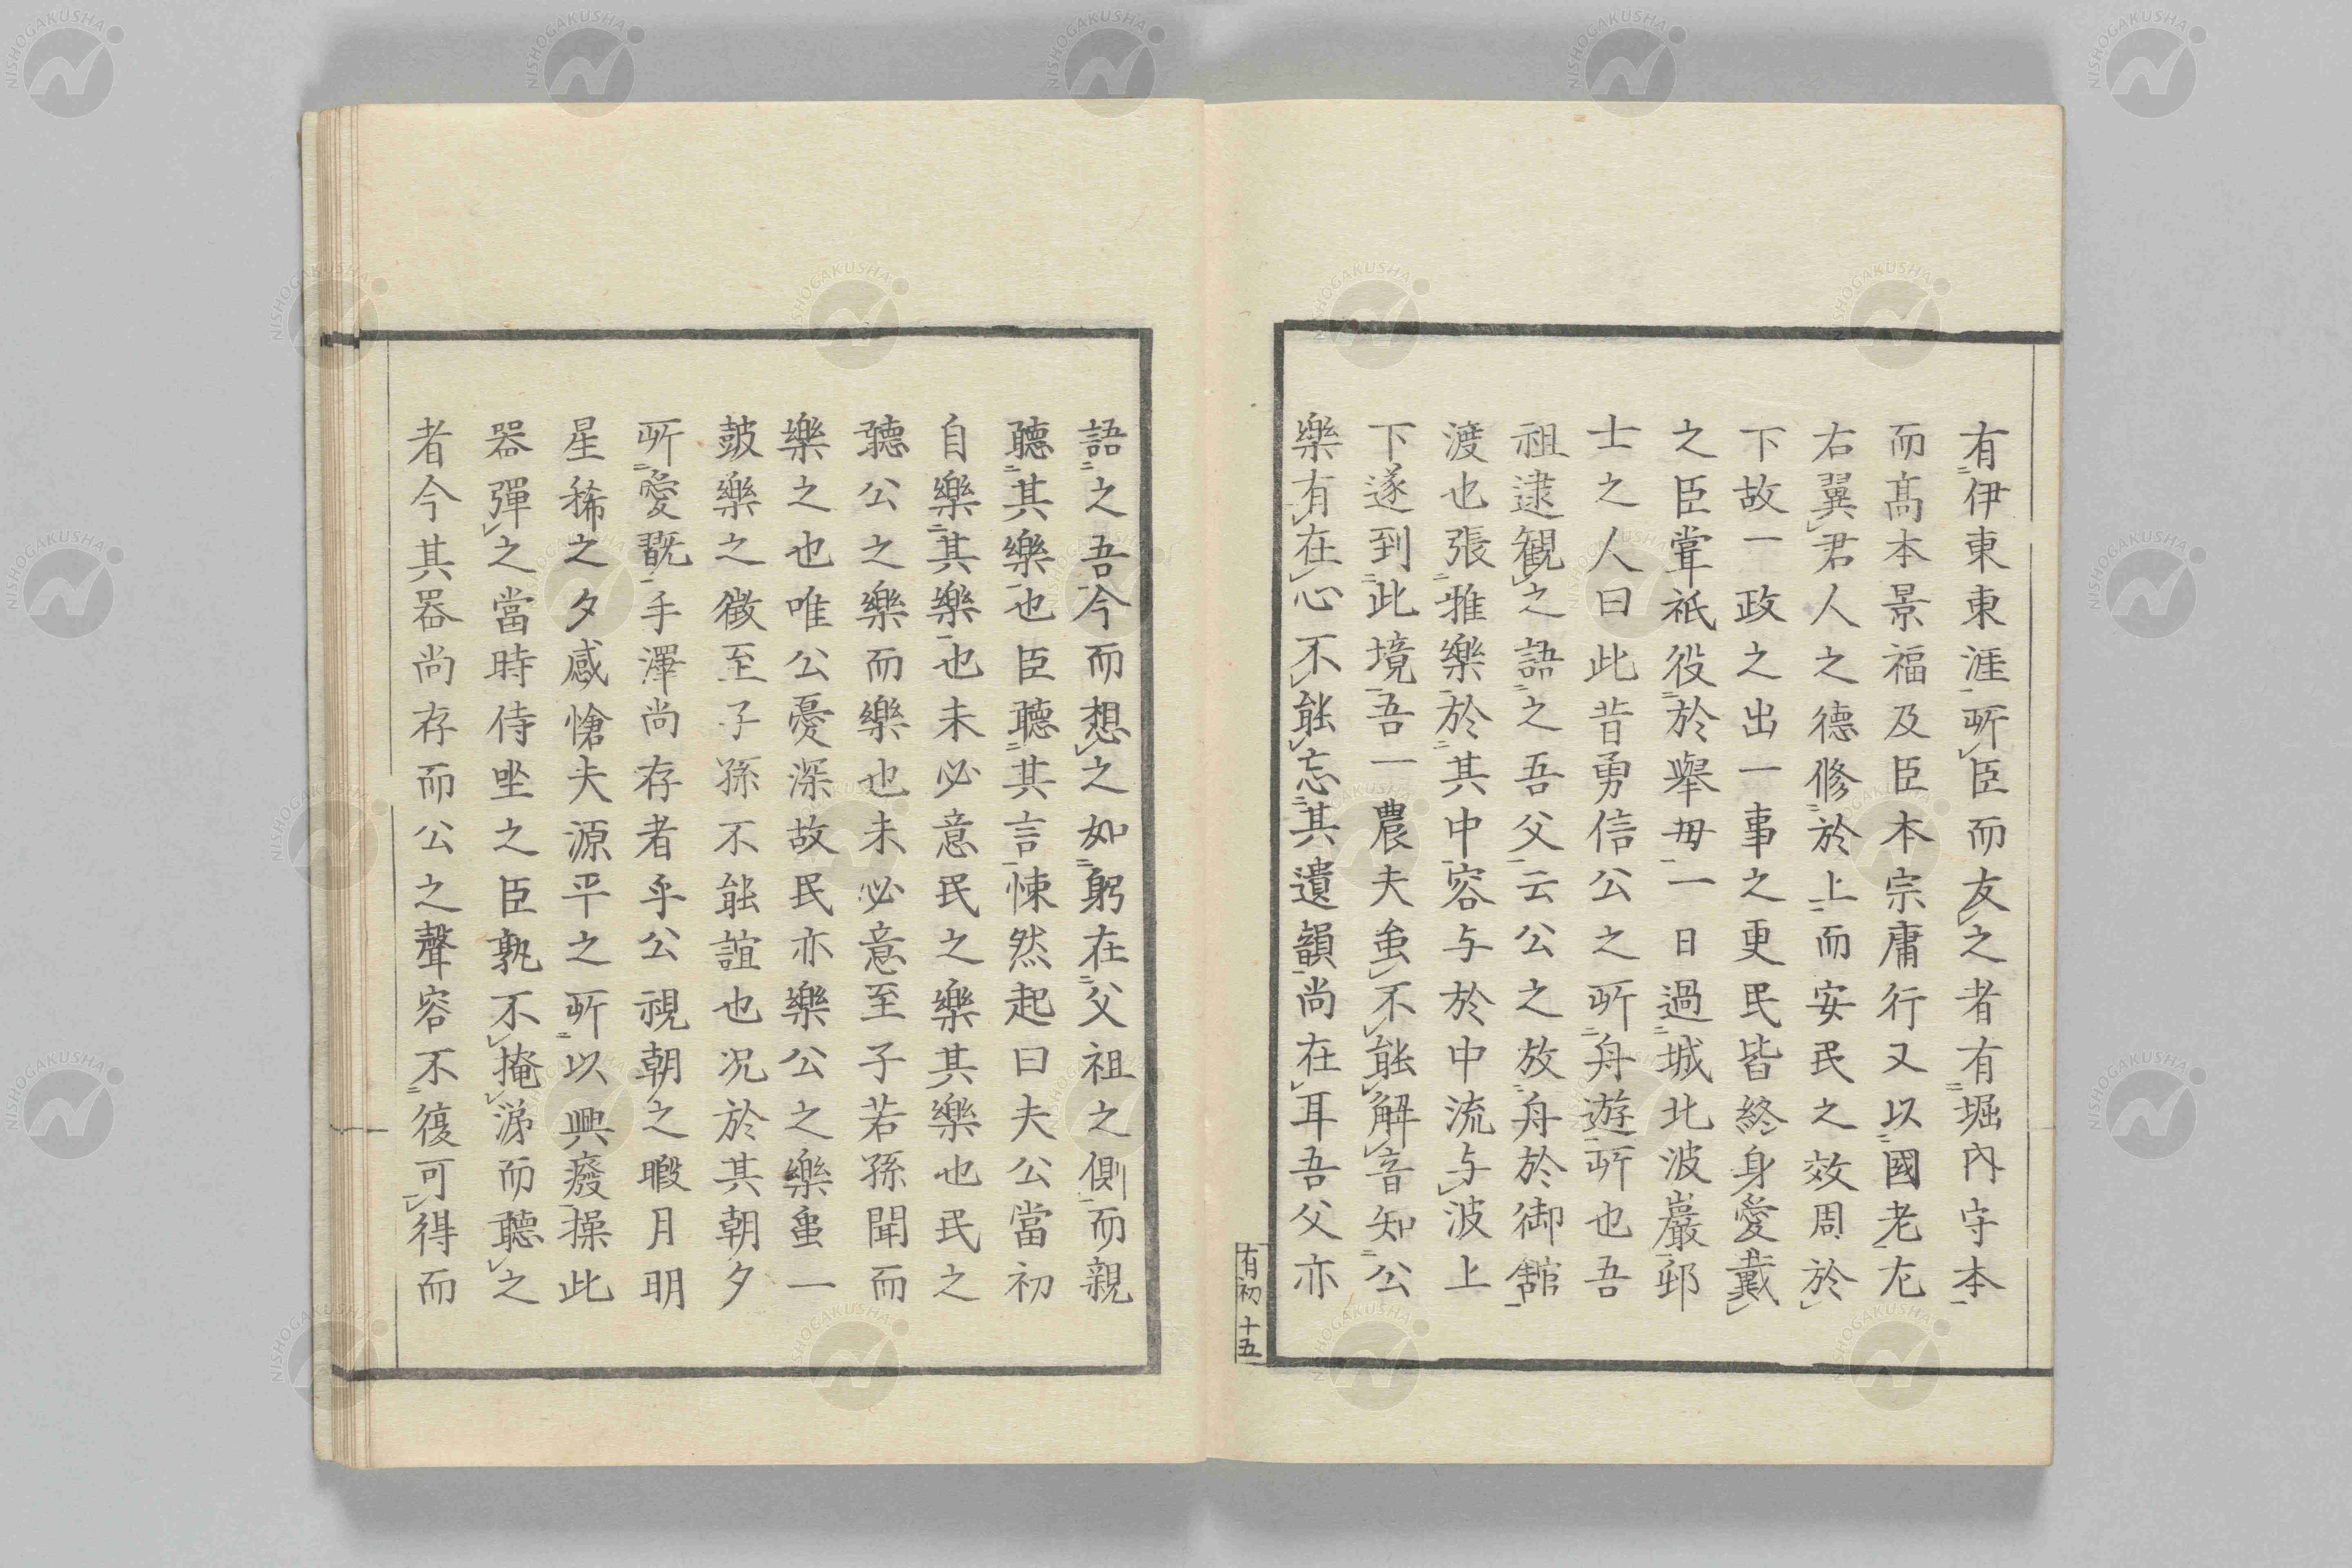 有伊東東涯所臣而友之者有堀內守本
而髙本景福及臣本宗庸行又以國老尤
右翼君人之德修於上而安民之效周於
下故一政之出一事之更民皆終身愛戴
之臣甞祇役於舉毋一日過城北波巖邨
士之人曰此昔勇信公之所舟遊所也吾
祖逮観之語之吾父云公之放舟於御舘
渡也張雅樂於其中容与於中流与波上
下遂到此境吾一農夫虽不能解音知公
樂有在心不能忘其遺韻尚在耳吾父亦
語之吾今而想之如躬在父祖之側而親
聽其樂也臣聽其言悚然起曰夫公當初
自樂其樂也未必意民之樂其樂也民之
聽公之樂而樂也未必意至子若孫聞而
樂之也唯公憂深故民亦樂公之樂虽一
鼓樂之微至子孫不能諠也况於其朝夕
所愛翫手澤尚存者乎公視朝之暇月明
星稀之夕感愴夫源平之所以興癈操此
器彈之當時侍坐之臣孰不掩涕而聽之
者今其器尚存而公之聲容不復可得而
有初 十五
NISHOGAKUSHA